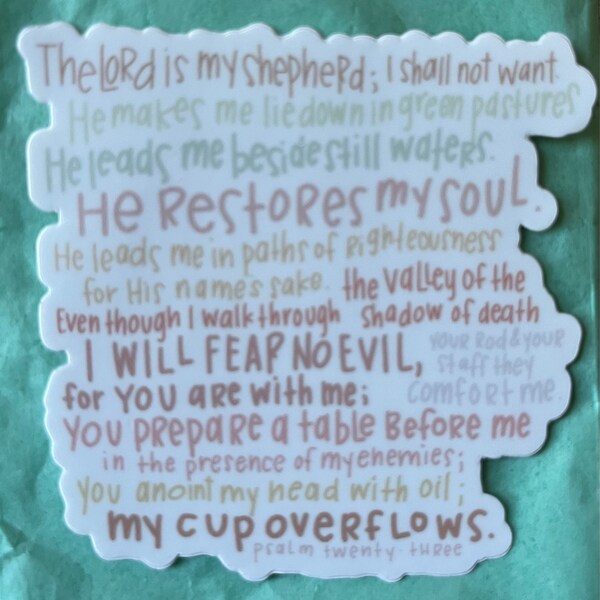 The LORD is my shepherd; I shall not want.
He makes me lie down in green pastures
He leads me beside still waters.
He Restores my soul.
He leads me in paths of Righteousness
for His name's sake.
Even though I walk through
the valley of the
shadow of death
I WILL FEAR NO EVIL,
for you are with me;
your Rod & your
staff they
comfort me.
you prepare a table Before me
in the presence of my enemies;
you anoint my head with oil;
my cup overflows.
psalm twenty-three